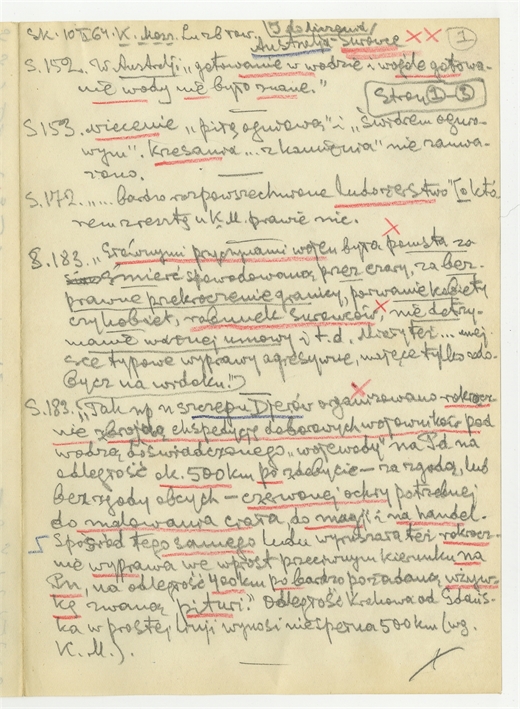 Sk. 10 X 64. K. Mosz. Ludy row. I do hierawd/ ①
Australja - surowce
S. 152. W Australji „gotowanie w wodzie i wogóle gotowa-
nie wody nie było znane."
Stron ①-③
S. 153. wiercenie „piłą ogniową" i „świdrem ognio-
wym". Kresania ... z kamienia" nie zauwa-
żono.
S. 172. „... bardzo rozpowszechnione ludożerstwo" [o któ
rem zresztą u K.M. prawie nic.
S. 183. „Głównymi przyczynami wojen była pomsta za
śmierć spowodowaną przez czary, za bez-
prawne przekroczenie granicy, porwanie kobiety
czy kobiet, rabunek surowców, nie dotrzy-
manie ważnej umowy i t.d. Niezbyt ... miej-
sce typowe wyprawy agresywne, mające tylko zdo-
bycz na widoku."
S. 183. „Tak np u szczepu Djerów organizowano rokrocz-
nie zbrojną ekspedycję doborowych wojowników pod
wodzą doświadczonego „wojewody" na Pd. na
odległość ok. 500 km po zdobycie – za zgodą, lub
bez zgody obcych – czerwonej ochry potrzebnej
do malowania ciała do magji i na handel.
Spośród tego samego ludu wyruszała też rokrocz-
nie wyprawa we wprost przeciwnym kierunku na
Pn, na odległość 400 km po bardzo pożądaną używ-
kę zwaną „pituri." Odległość Krakowa od Gdańs-
ka w prostej linji wynosi niespełna 500 km (wg.
K. M.).